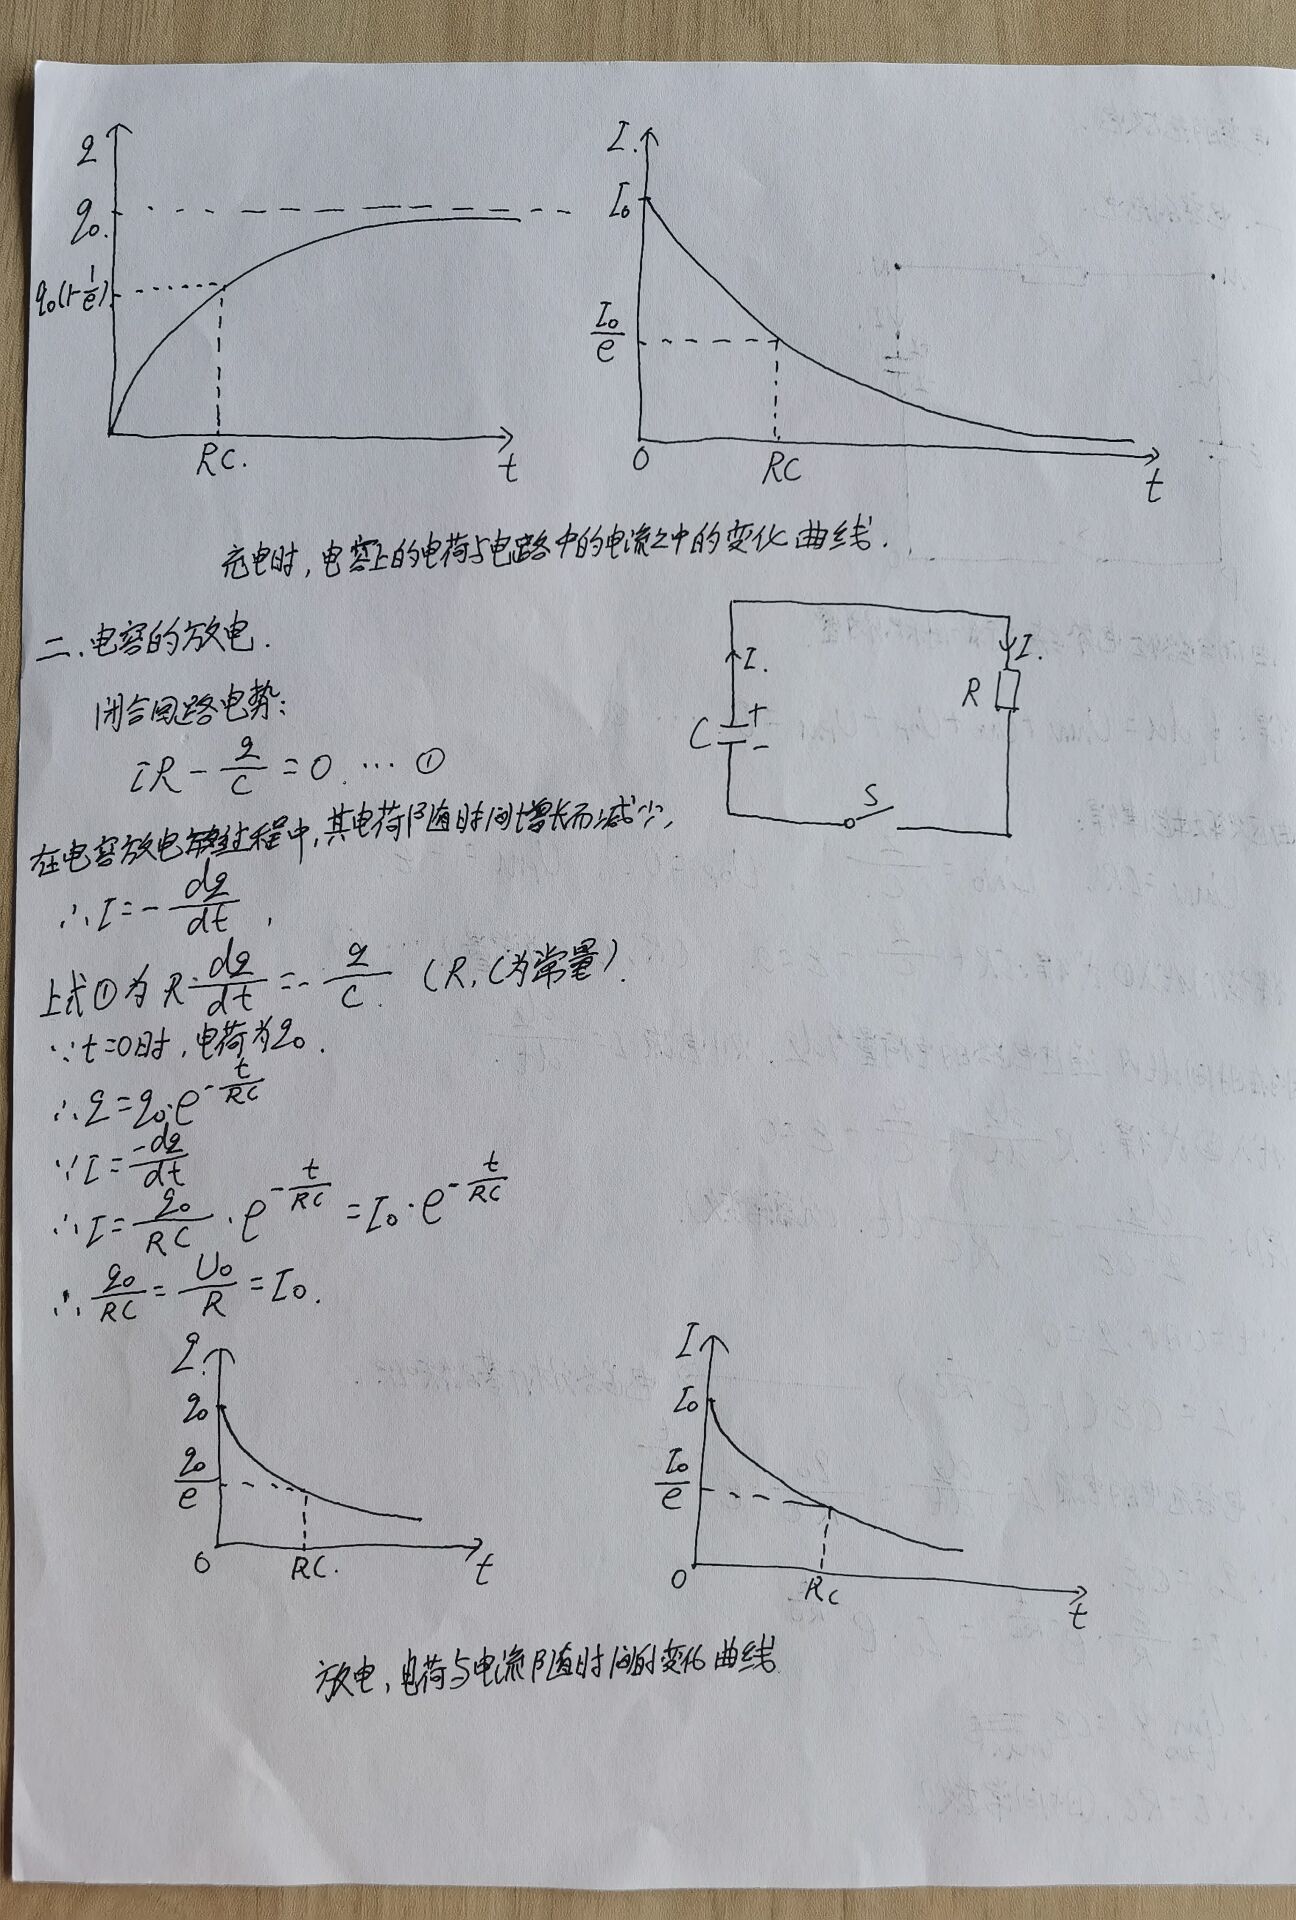 q
q₀
q₀(1-1/e)
RC.
t
I.
I₀
I₀/e
0
RC
t
充电时,电容上的电荷与电路中的电流之中的变化曲线.
二.电容的放电.
闭合回路电势:
iR - q/C = 0. … ①
在电容放电过程中,其电荷随时间t增长而减少,
∴ I = - dq/dt ,
上式①为 R·dq/dt = - q/C. (R, C为常量).
∵ t=0时,电荷为q₀.
∴ q = q₀·e^(-t/RC)
∵ I = -dq/dt
∴ I = q₀/RC · e^(-t/RC) = I₀·e^(-t/RC)
∴ q₀/RC = U₀/R = I₀.
I.
C
+
-
S
R
I.
q.
q₀
q₀/e
0
RC.
t
I
I₀
I₀/e
0
RC
t
放电,电荷与电流随时间的变化曲线